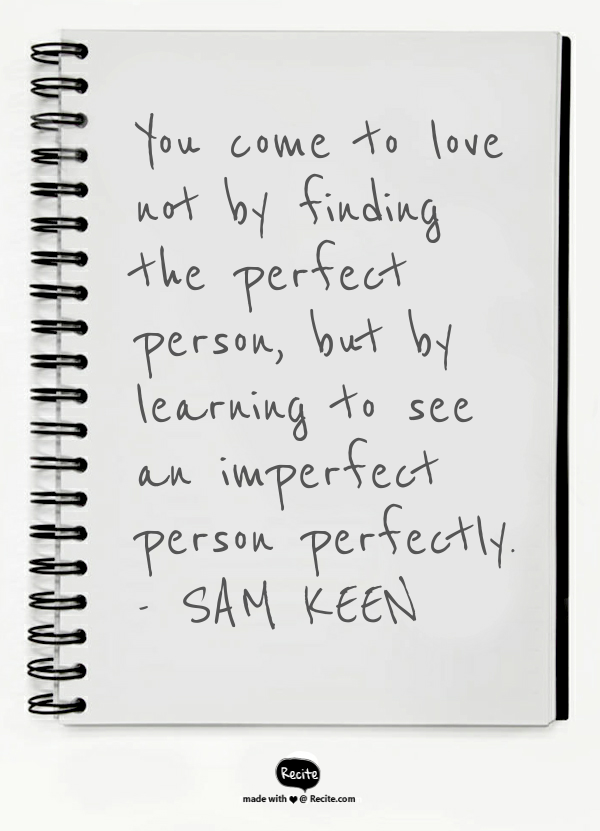 You come to love
not by finding
the perfect
person, but by
learning to see
an imperfect
person perfectly.
- SAM KEEN
Recite
made with ♥ @ Recite.com